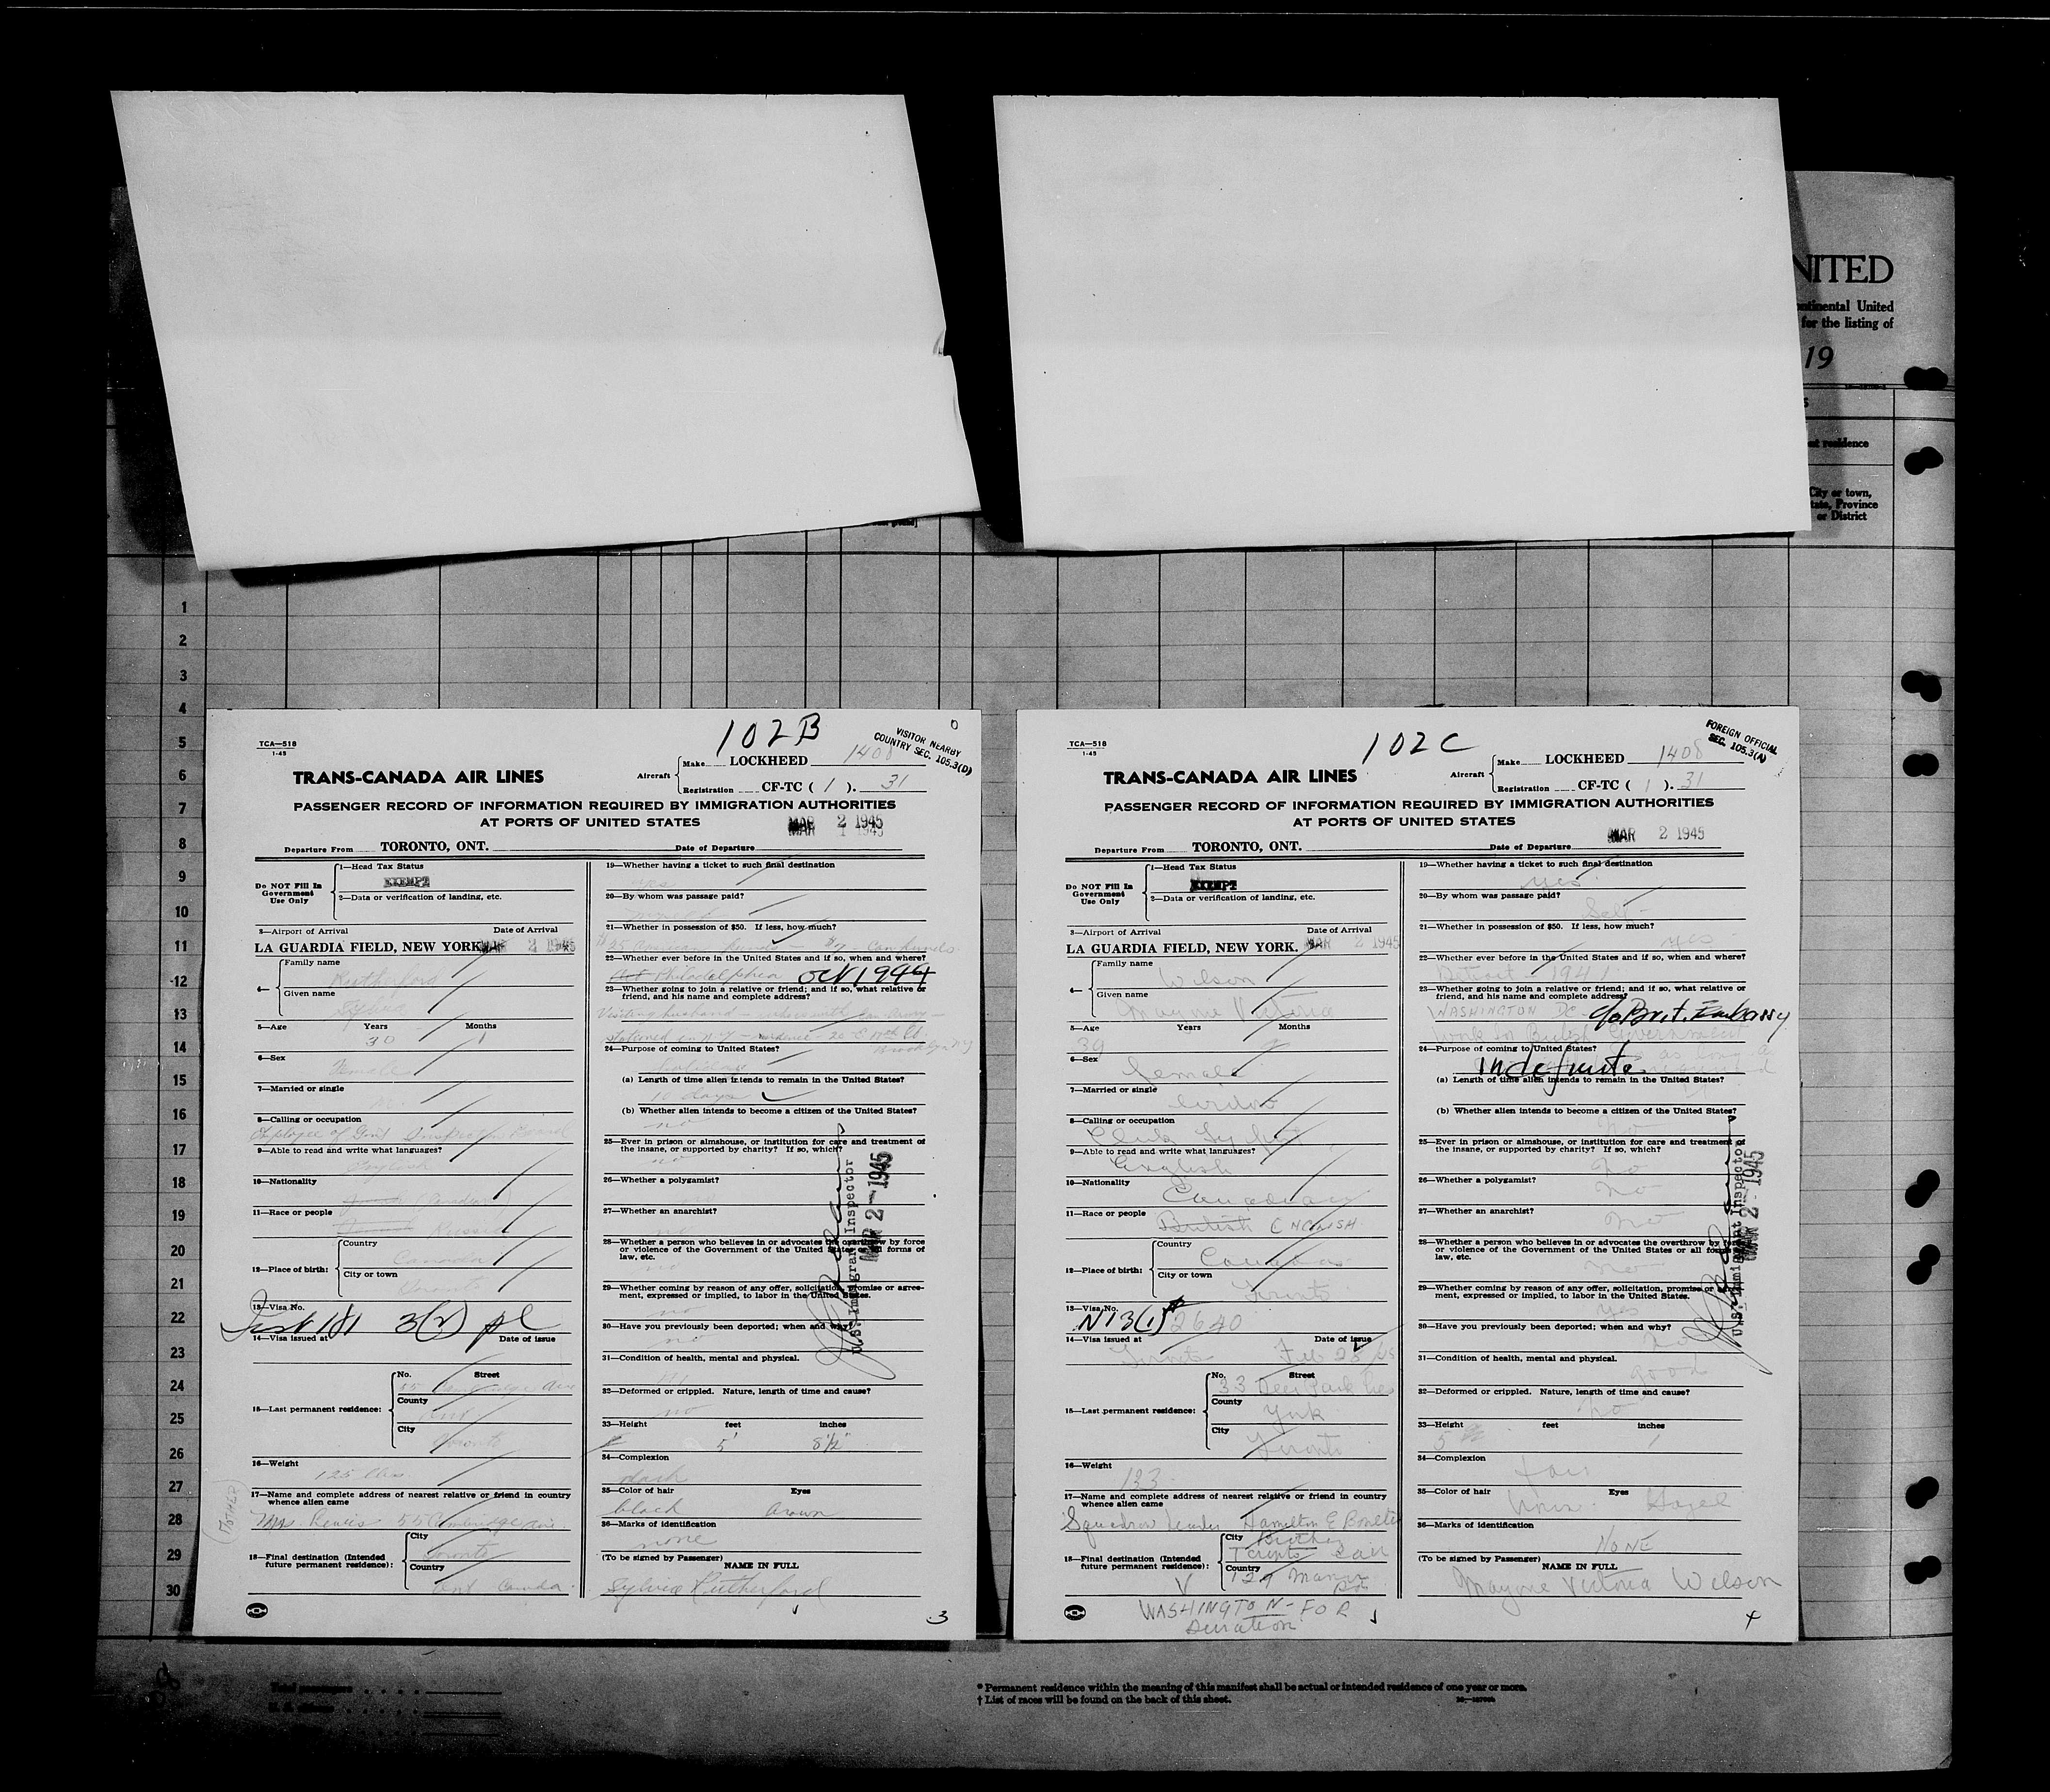 NITED
ntinental United
for the listing of
19
nt residence
City or town,
tate, Province
or District
1
2
3
4
5
6
7
8
9
10
11
12
13
14
15
16
17
18
19
20
21
22
23
24
25
26
27
28
29
30
102B
VISITOR NEARBY
COUNTRY SEC. 105.3(D)
TCA—518
1-45
TRANS-CANADA AIR LINES
Aircraft
Make LOCKHEED 1408
Registration CF-TC ( 1 ). 31
PASSENGER RECORD OF INFORMATION REQUIRED BY IMMIGRATION AUTHORITIES
AT PORTS OF UNITED STATES
MAR 2 1945
MAR 1 1945
Departure From TORONTO, ONT. Date of Departure
Do NOT Fill In
Government
Use Only
1—Head Tax Status
EXEMPT
2—Data or verification of landing, etc.
3—Airport of Arrival Date of Arrival
LA GUARDIA FIELD, NEW YORK. MAR 2 1945
4— Family name
Rutherford
Given name
Sylvia
5—Age Years Months
30
6—Sex
Female
7—Married or single
8—Calling or occupation
Employee of Gov't Inspection Board
9—Able to read and write what languages?
English
10—Nationality
(Canadian)
11—Race or people
Russian
12—Place of birth: Country
Canada
City or town
Toronto
13—Visa No.
3(2)
14—Visa issued at Date of issue
15—Last permanent residence: No. Street
55 Cambridge Ave
County
York
City
Toronto
16—Weight
125 lbs
17—Name and complete address of nearest relative or friend in country
whence alien came
(MOTHER)
Mrs. Lewis 55 Cambridge Ave.
18—Final destination (Intended
future permanent residence): City
Toronto
Country
Ont Canada.
19—Whether having a ticket to such final destination
yes
20—By whom was passage paid?
myself
21—Whether in possession of $50. If less, how much?
$35 American funds — $7 - Can funds
22—Whether ever before in the United States and if so, when and where?
Philadelphia Oct 1944
23—Whether going to join a relative or friend; and if so, what relative or
friend, and his name and complete address?
Visiting husband — who is with Can Army —
stationed in N.Y — residence - 20 - E 19th St.
Brooklyn N.Y
24—Purpose of coming to United States?
holiday
(a) Length of time alien intends to remain in the United States?
10 days
(b) Whether alien intends to become a citizen of the United States?
no
25—Ever in prison or almshouse, or institution for care and treatment of
the insane, or supported by charity? If so, which?
no
26—Whether a polygamist?
27—Whether an anarchist?
no
28—Whether a person who believes in or advocates the overthrow by force
or violence of the Government of the United States or all forms of
law, etc.
no
29—Whether coming by reason of any offer, solicitation, promise or agree-
ment, expressed or implied, to labor in the United States.
no
30—Have you previously been deported; when and why?
no
31—Condition of health, mental and physical.
32—Deformed or crippled. Nature, length of time and cause?
no
33—Height feet inches
5' 8½"
34—Complexion
dark
35—Color of hair Eyes
black brown
36—Marks of identification
none
(To be signed by Passenger) NAME IN FULL
Sylvia Rutherford
U.S. Immigrant Inspector
MAR 2 - 1945
3
102C
FOREIGN OFFICIAL
SEC. 105.3(A)
TCA—518
1-45
TRANS-CANADA AIR LINES
Aircraft
Make LOCKHEED 1408
Registration CF-TC ( 1 ). 31
PASSENGER RECORD OF INFORMATION REQUIRED BY IMMIGRATION AUTHORITIES
AT PORTS OF UNITED STATES
MAR 2 1945
Departure From TORONTO, ONT. Date of Departure
Do NOT Fill In
Government
Use Only
1—Head Tax Status
EXEMPT
2—Data or verification of landing, etc.
3—Airport of Arrival Date of Arrival
LA GUARDIA FIELD, NEW YORK. MAR 2 1945
4— Family name
Wilson
Given name
Marjorie Victoria
5—Age Years Months
39 9
6—Sex
Female
7—Married or single
Widow
8—Calling or occupation
Clerk Typist
9—Able to read and write what languages?
English
10—Nationality
Canadian
11—Race or people
British ENGLISH
12—Place of birth: Country
Canada
City or town
Toronto
13—Visa No.
N13(1) 2640
14—Visa issued at Date of issue
Toronto Feb 28/45
15—Last permanent residence: No. Street
33 Deer Park Cres
County
York
City
Toronto
16—Weight
133
17—Name and complete address of nearest relative or friend in country
whence alien came
Squadron Leader Hamilton E Boulter
Brother
18—Final destination (Intended
future permanent residence): City
Toronto Can
Country
129 Manor Rd
WASHINGTON - FOR
Duration
19—Whether having a ticket to such final destination
yes
20—By whom was passage paid?
Self -
21—Whether in possession of $50. If less, how much?
yes
22—Whether ever before in the United States and if so, when and where?
Detroit - 1941
23—Whether going to join a relative or friend; and if so, what relative or
friend, and his name and complete address?
WASHINGTON DC c/o Brit. Embassy
work for British Government
24—Purpose of coming to United States?
indefinite as long
(a) Length of time alien intends to remain in the United States?
(b) Whether alien intends to become a citizen of the United States?
no
25—Ever in prison or almshouse, or institution for care and treatment of
the insane, or supported by charity? If so, which?
no
26—Whether a polygamist?
no
27—Whether an anarchist?
no
28—Whether a person who believes in or advocates the overthrow by force
or violence of the Government of the United States or all forms of
law, etc.
no
29—Whether coming by reason of any offer, solicitation, promise or agree-
ment, expressed or implied, to labor in the United States.
yes
30—Have you previously been deported; when and why?
no
31—Condition of health, mental and physical.
good
32—Deformed or crippled. Nature, length of time and cause?
no
33—Height feet inches
5 1
34—Complexion
fair
35—Color of hair Eyes
brown Hazel
36—Marks of identification
NONE
(To be signed by Passenger) NAME IN FULL
Marjorie Victoria Wilson
U.S. Immigrant Inspector
MAR 2 - 1945
4
Total passengers
U. S. citizens
* Permanent residence within the meaning of this manifest shall be actual or intended residence of one year or more.
† List of races will be found on the back of this sheet.